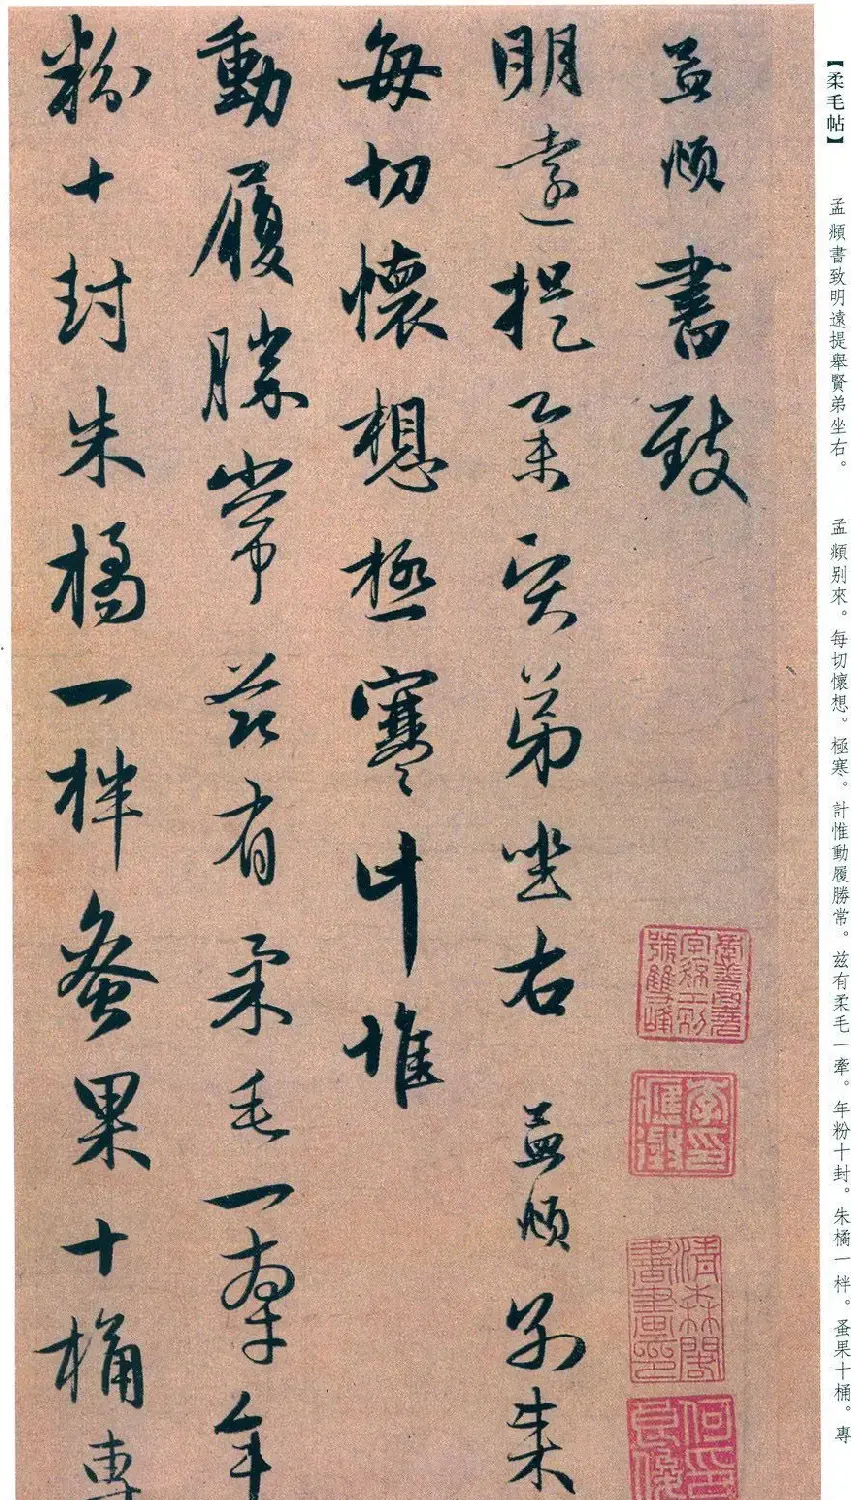 【柔毛帖】 孟頫書致明遠提舉賢弟坐右。 孟頫别來。每切懷想。極寒。計惟動履勝常。兹有柔毛一牽。年粉十封。朱橘一柈。蚤果十桶。專
孟頫書致
明遠提舉賢弟坐右 孟頫別來
每切懷想極寒計惟
動履勝常茲有柔毛一牽年
粉十封朱橘一柈蚤果十桶專
清森閣書畫印